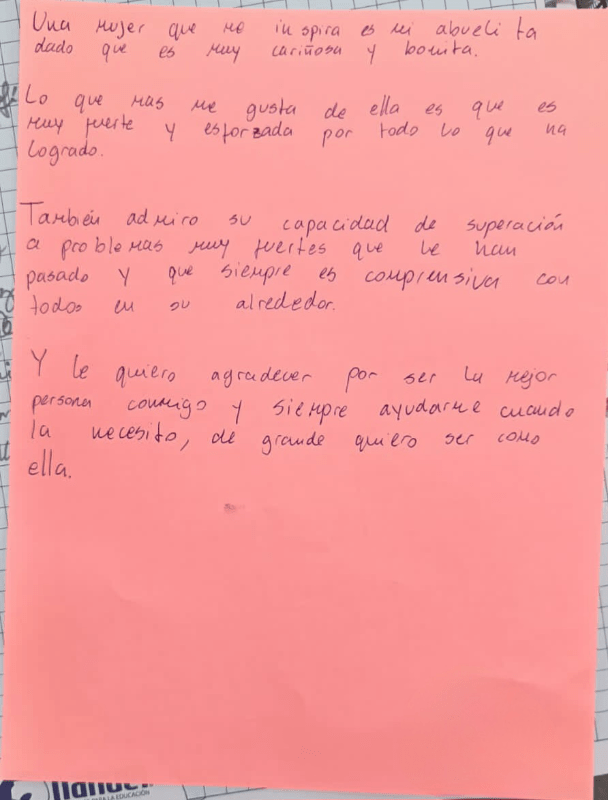 Una mujer que me inspira es mi abuelita
dado que es muy cariñosa y bonita.
Lo que mas me gusta de ella es que es
muy fuerte y esforzada por todo lo que ha
logrado.
También admiro su capacidad de superación
a problemas muy fuertes que le han
pasado y que siempre es comprensiva con
todos en su alrededor.
Y le quiero agradecer por ser la mejor
persona conmigo y siempre ayudarme cuando
la necesito, de grande quiero ser como
ella.
PARA LA EDUCACIÓN